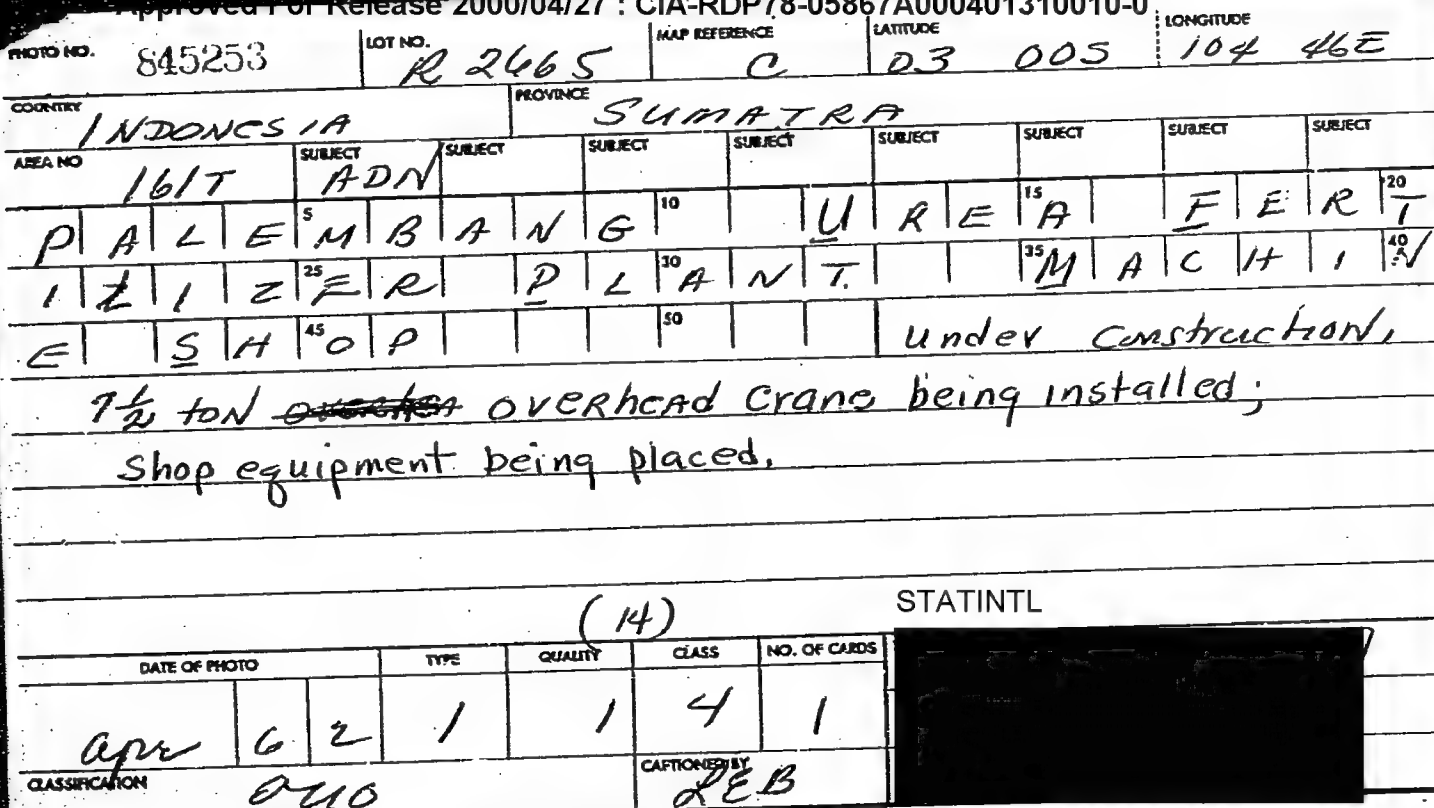 Approved For Release 2000/04/27 : CIA-RDP78-05867A000401310010-0
PHOTO NO. 845253 LOT NO. R 2665 MAP REFERENCE C LATITUDE 03 00S LONGITUDE 104 46E
COUNTRY INDONESIA PROVINCE SUMATRA
AREA NO 161T SUBJECT ADN SUBJECT SUBJECT SUBJECT SUBJECT SUBJECT SUBJECT SUBJECT
PALE 5 MBANG 10 URE 15 A FER 20 T
ILIZ 25 ER PL 30 ANT. 35 MACHI 40 N
E SH 45 OP 50 under construction,
7½ ton overhead crane being installed;
Shop equipment being placed.
(14) STATINTL
DATE OF PHOTO TYPE QUALITY CLASS NO. OF CARDS
apr 62 1 1 4 1
CLASSIFICATION OUO CAPTIONED BY REB